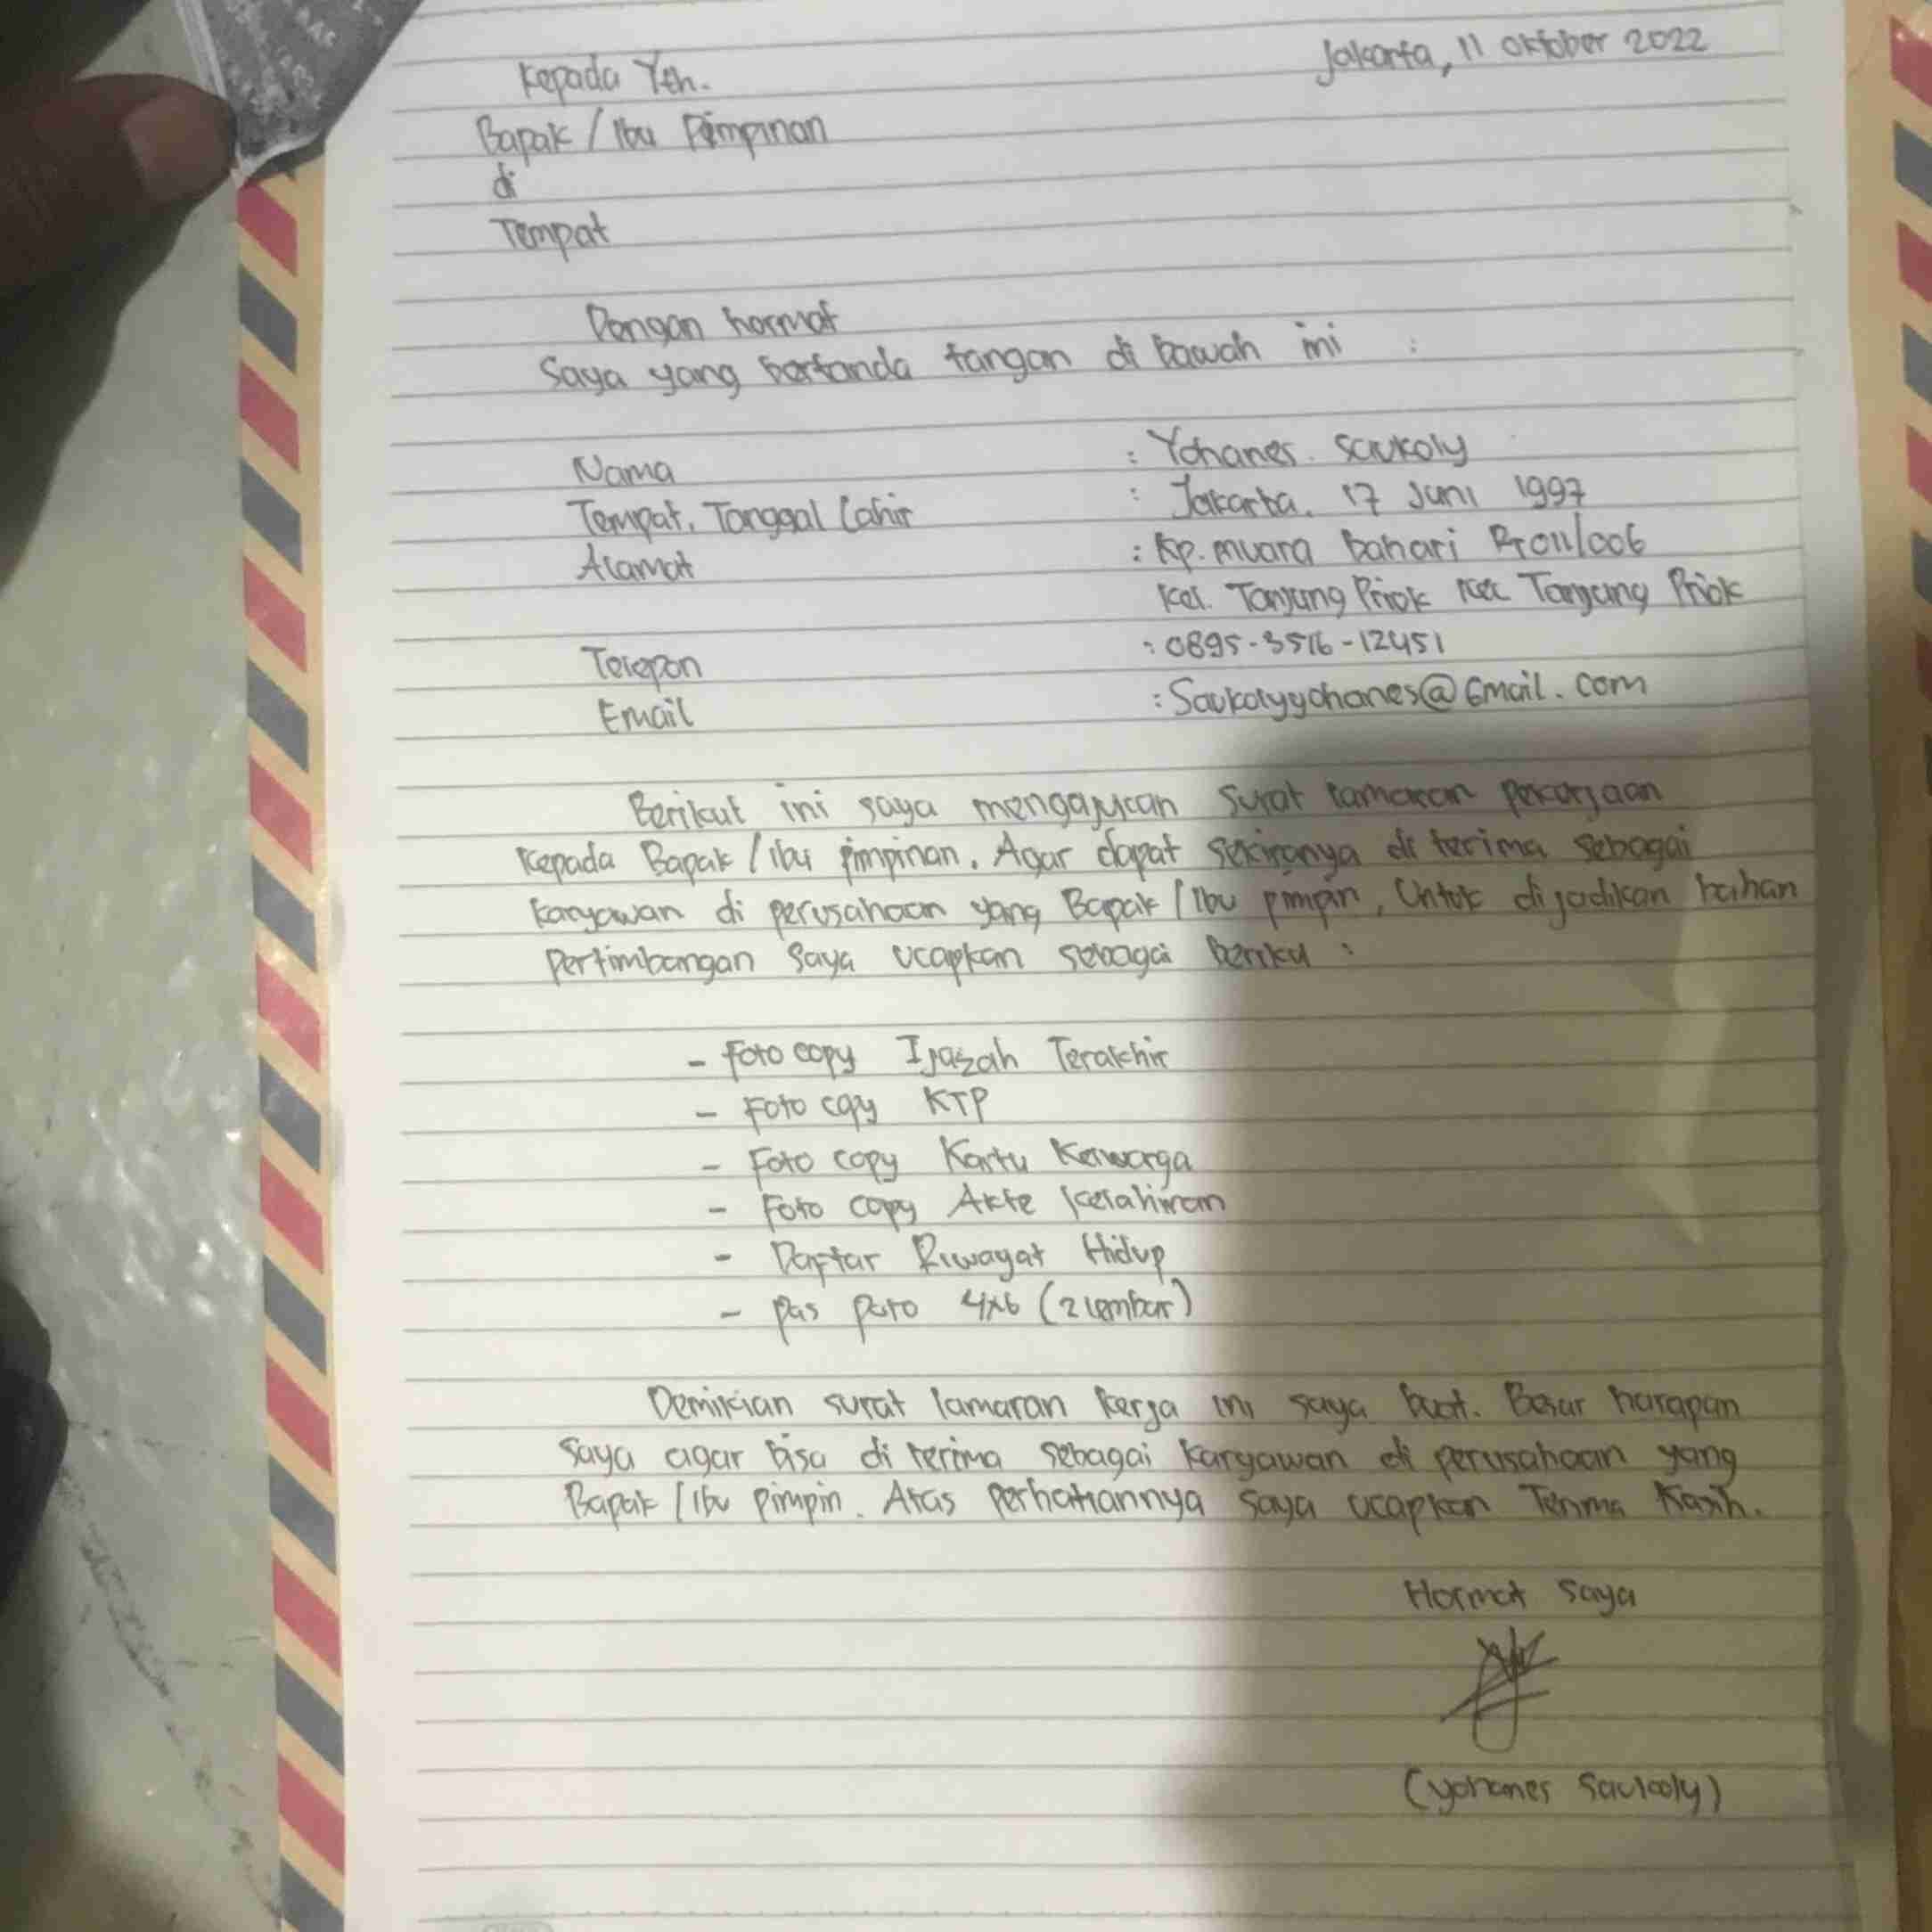 Jakarta, 11 Oktober 2022
Kepada Yth.
Bapak / Ibu Pimpinan
di
Tempat
Dengan hormat
Saya yang bertanda tangan di bawah ini :
Nama : Yohanes. Saukoly
Tempat, Tanggal Lahir : Jakarta, 17 Juni 1997
Alamat : Kp. muara Bahari RT011/006
Kel. Tanjung Priok Kec Tanjung Priok
Telepon : 0895-3516-12451
Email : Saukolyyohanes@Gmail.com
Berikut ini saya mengajukan surat lamaran pekerjaan
kepada Bapak / Ibu pimpinan. Agar dapat sekiranya di terima sebagai
karyawan di perusahaan yang Bapak / Ibu pimpin, Untuk dijadikan bahan
pertimbangan saya ucapkan sebagai beriku :
- Foto copy Ijazah Terakhir
- Foto copy KTP
- Foto copy Kartu Kerwarga
- Foto copy Akte Kelahiran
- Daftar Riwayat Hidup
- pas poto 4x6 (2 lembar)
Demikian surat lamaran kerja ini saya buat. Besar harapan
saya agar bisa di terima sebagai karyawan di perusahaan yang
Bapak / Ibu pimpin. Atas perhatiannya saya ucapkan Terima Kasih.
Hormat saya
(yohanes Saukoly)